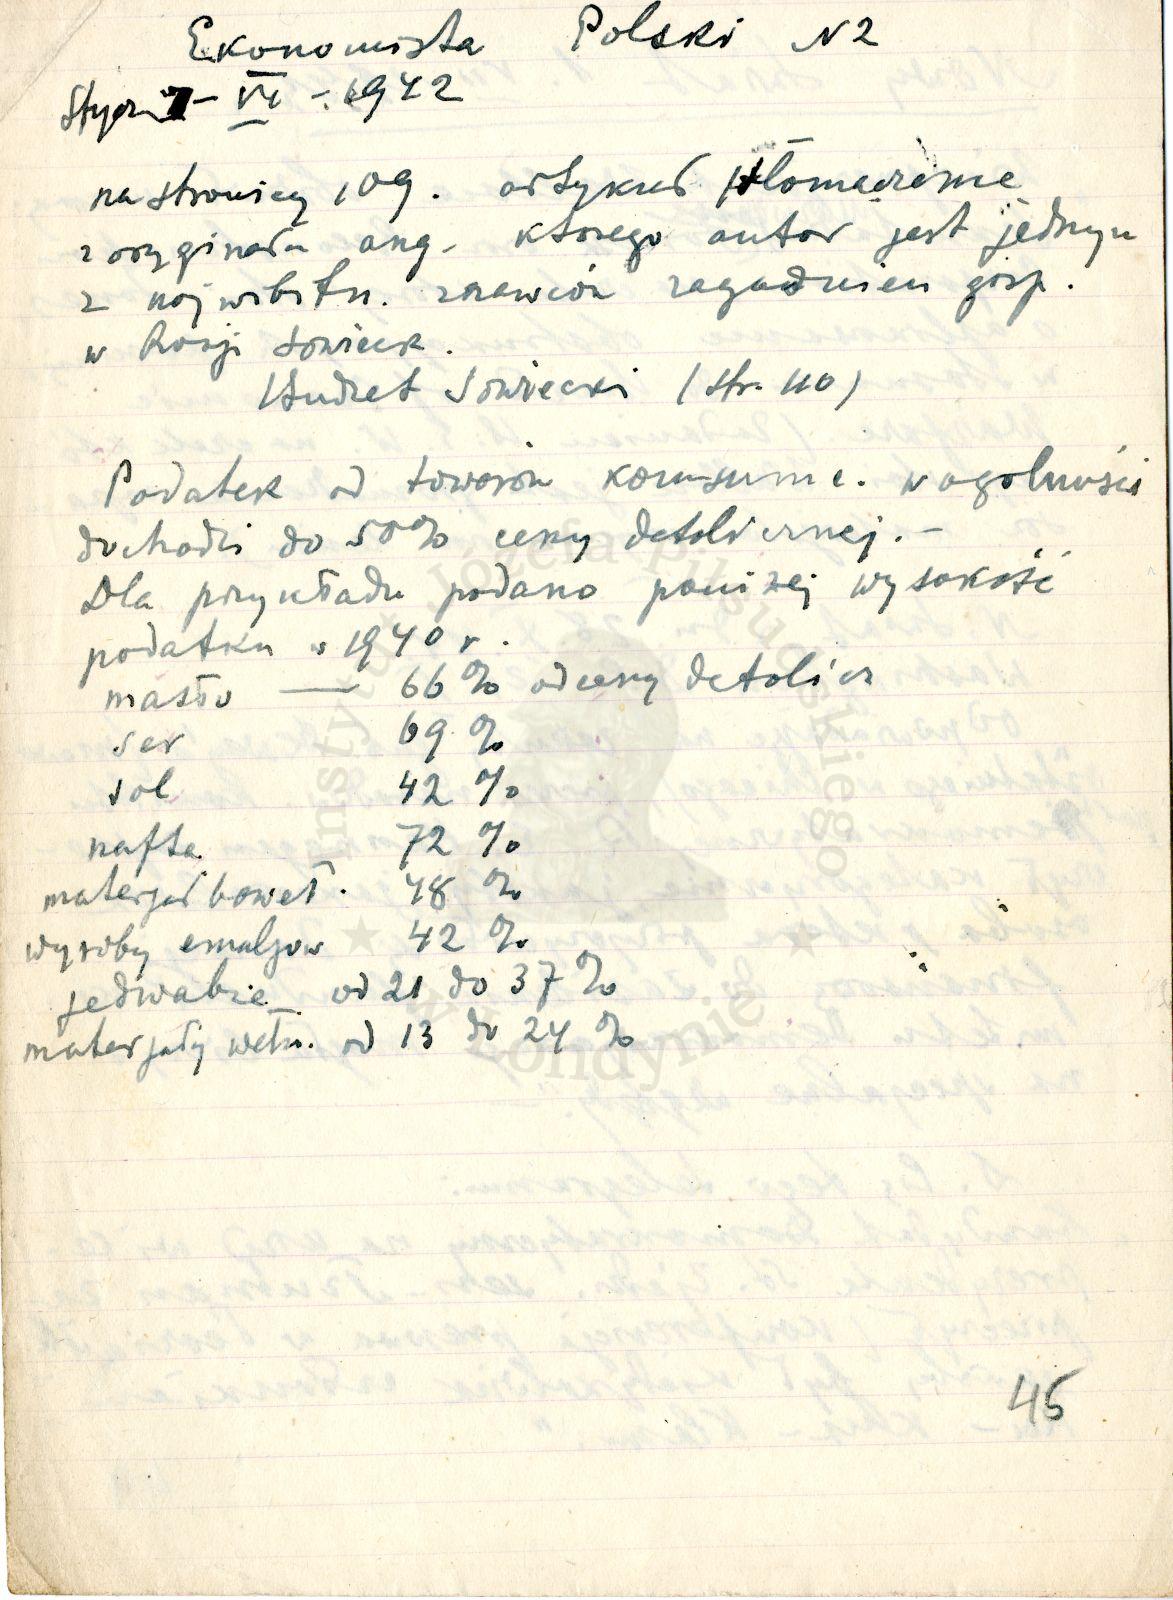 Ekonomista Polski N2
Stycz – VI – 1942
na stronicy 109. artykuł tłomaczenie
z oryginału ang. którego autor jest jednym
z najwibitn. znawców zagadnien gosp.
w Rosji sowieck.
Budżet Sowiecki (str. 110)
Podatek od towarów konsumc. w ogolności
dochodzi do 50% ceny detalicznej. –
Dla przykładu podano poniżej wysokość
podatku w 1940 r.
masło — 66% od ceny detalicz
ser 69 %
sol 42 %
nafta 72 %
materjał baweł. 48 %
wyroby emaljow 42 %
jedwabie od 21 do 37 %
materjały wełn. od 13 do 24 %
45
Instytut Józefa Piłsudskiego
w Londynie